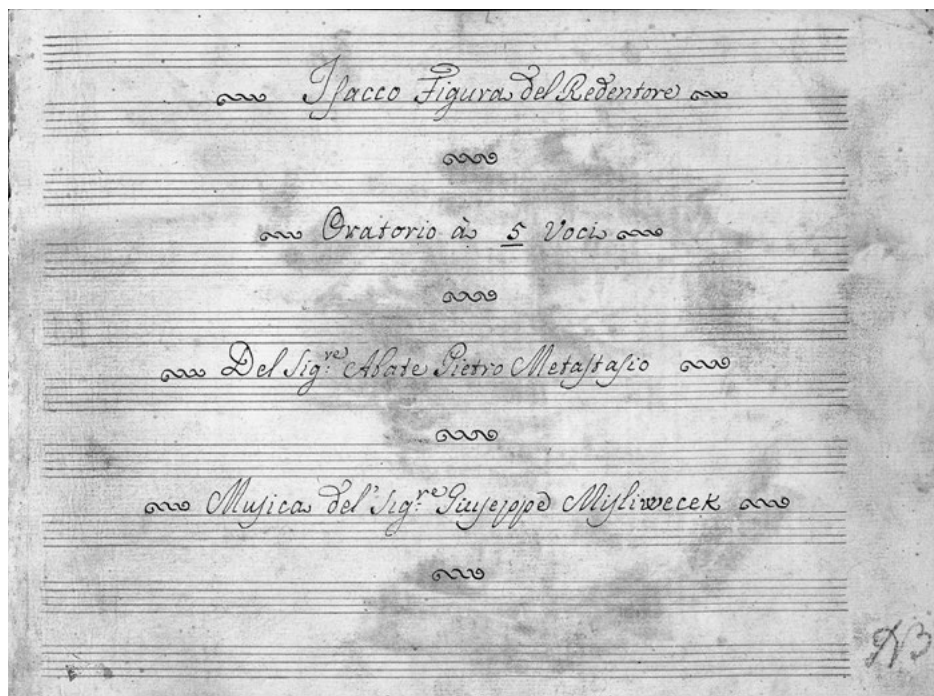 Isacco Figura del Redentore
Oratorio à 5 Voci
Del Sig:re Abate Pietro Metastasio
Musica del Sig:re Giuseppe Misliwecek